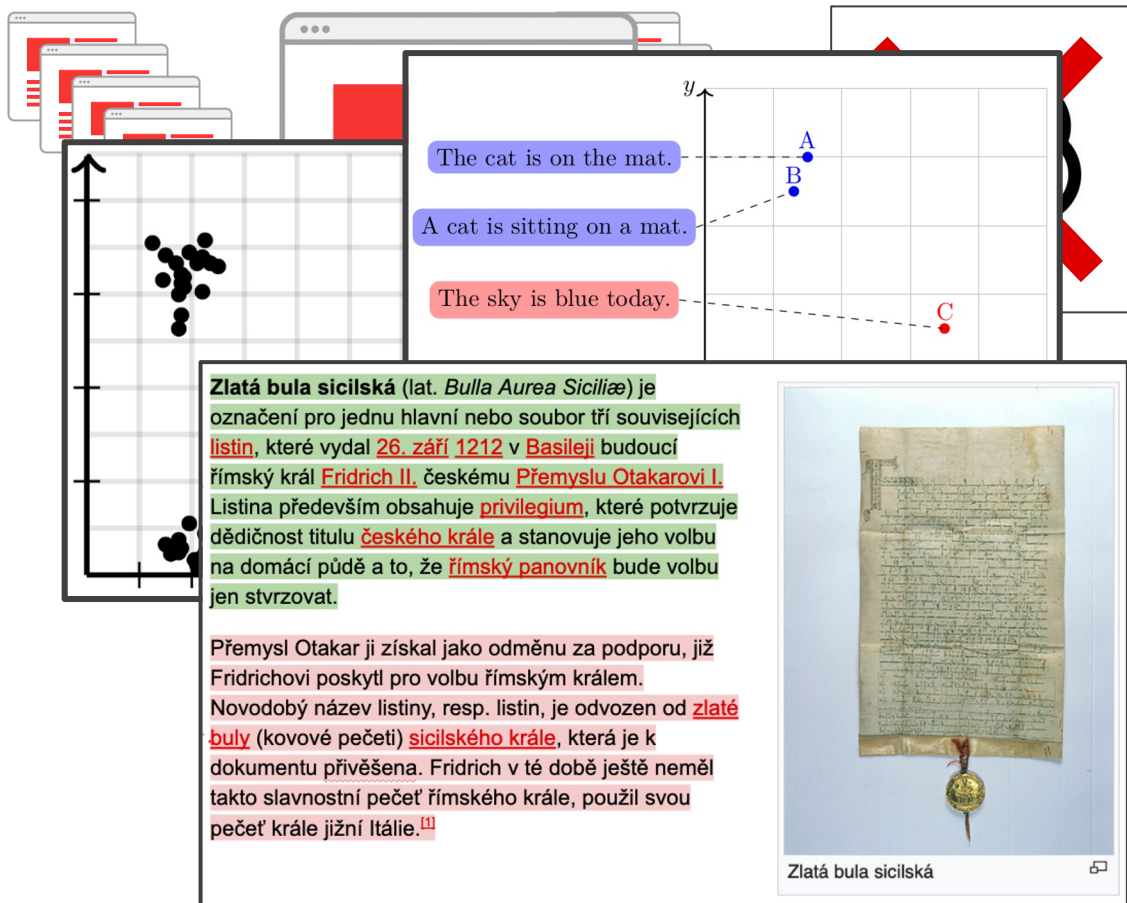 y
The cat is on the mat.
A
B
A cat is sitting on a mat.
The sky is blue today.
C
Zlatá bula sicilská (lat. Bulla Aurea Siciliæ) je
označení pro jednu hlavní nebo soubor tří souvisejících
listin, které vydal 26. září 1212 v Basileji budoucí
římský král Fridrich II. českému Přemyslu Otakarovi I.
Listina především obsahuje privilegium, které potvrzuje
dědičnost titulu českého krále a stanovuje jeho volbu
na domácí půdě a to, že římský panovník bude volbu
jen stvrzovat.
Přemysl Otakar ji získal jako odměnu za podporu, již
Fridrichovi poskytl pro volbu římským králem.
Novodobý název listiny, resp. listin, je odvozen od zlaté
buly (kovové pečeti) sicilského krále, která je k
dokumentu přivěšena. Fridrich v té době ještě neměl
takto slavnostní pečeť římského krále, použil svou
pečeť krále jižní Itálie.[1]
Zlatá bula sicilská